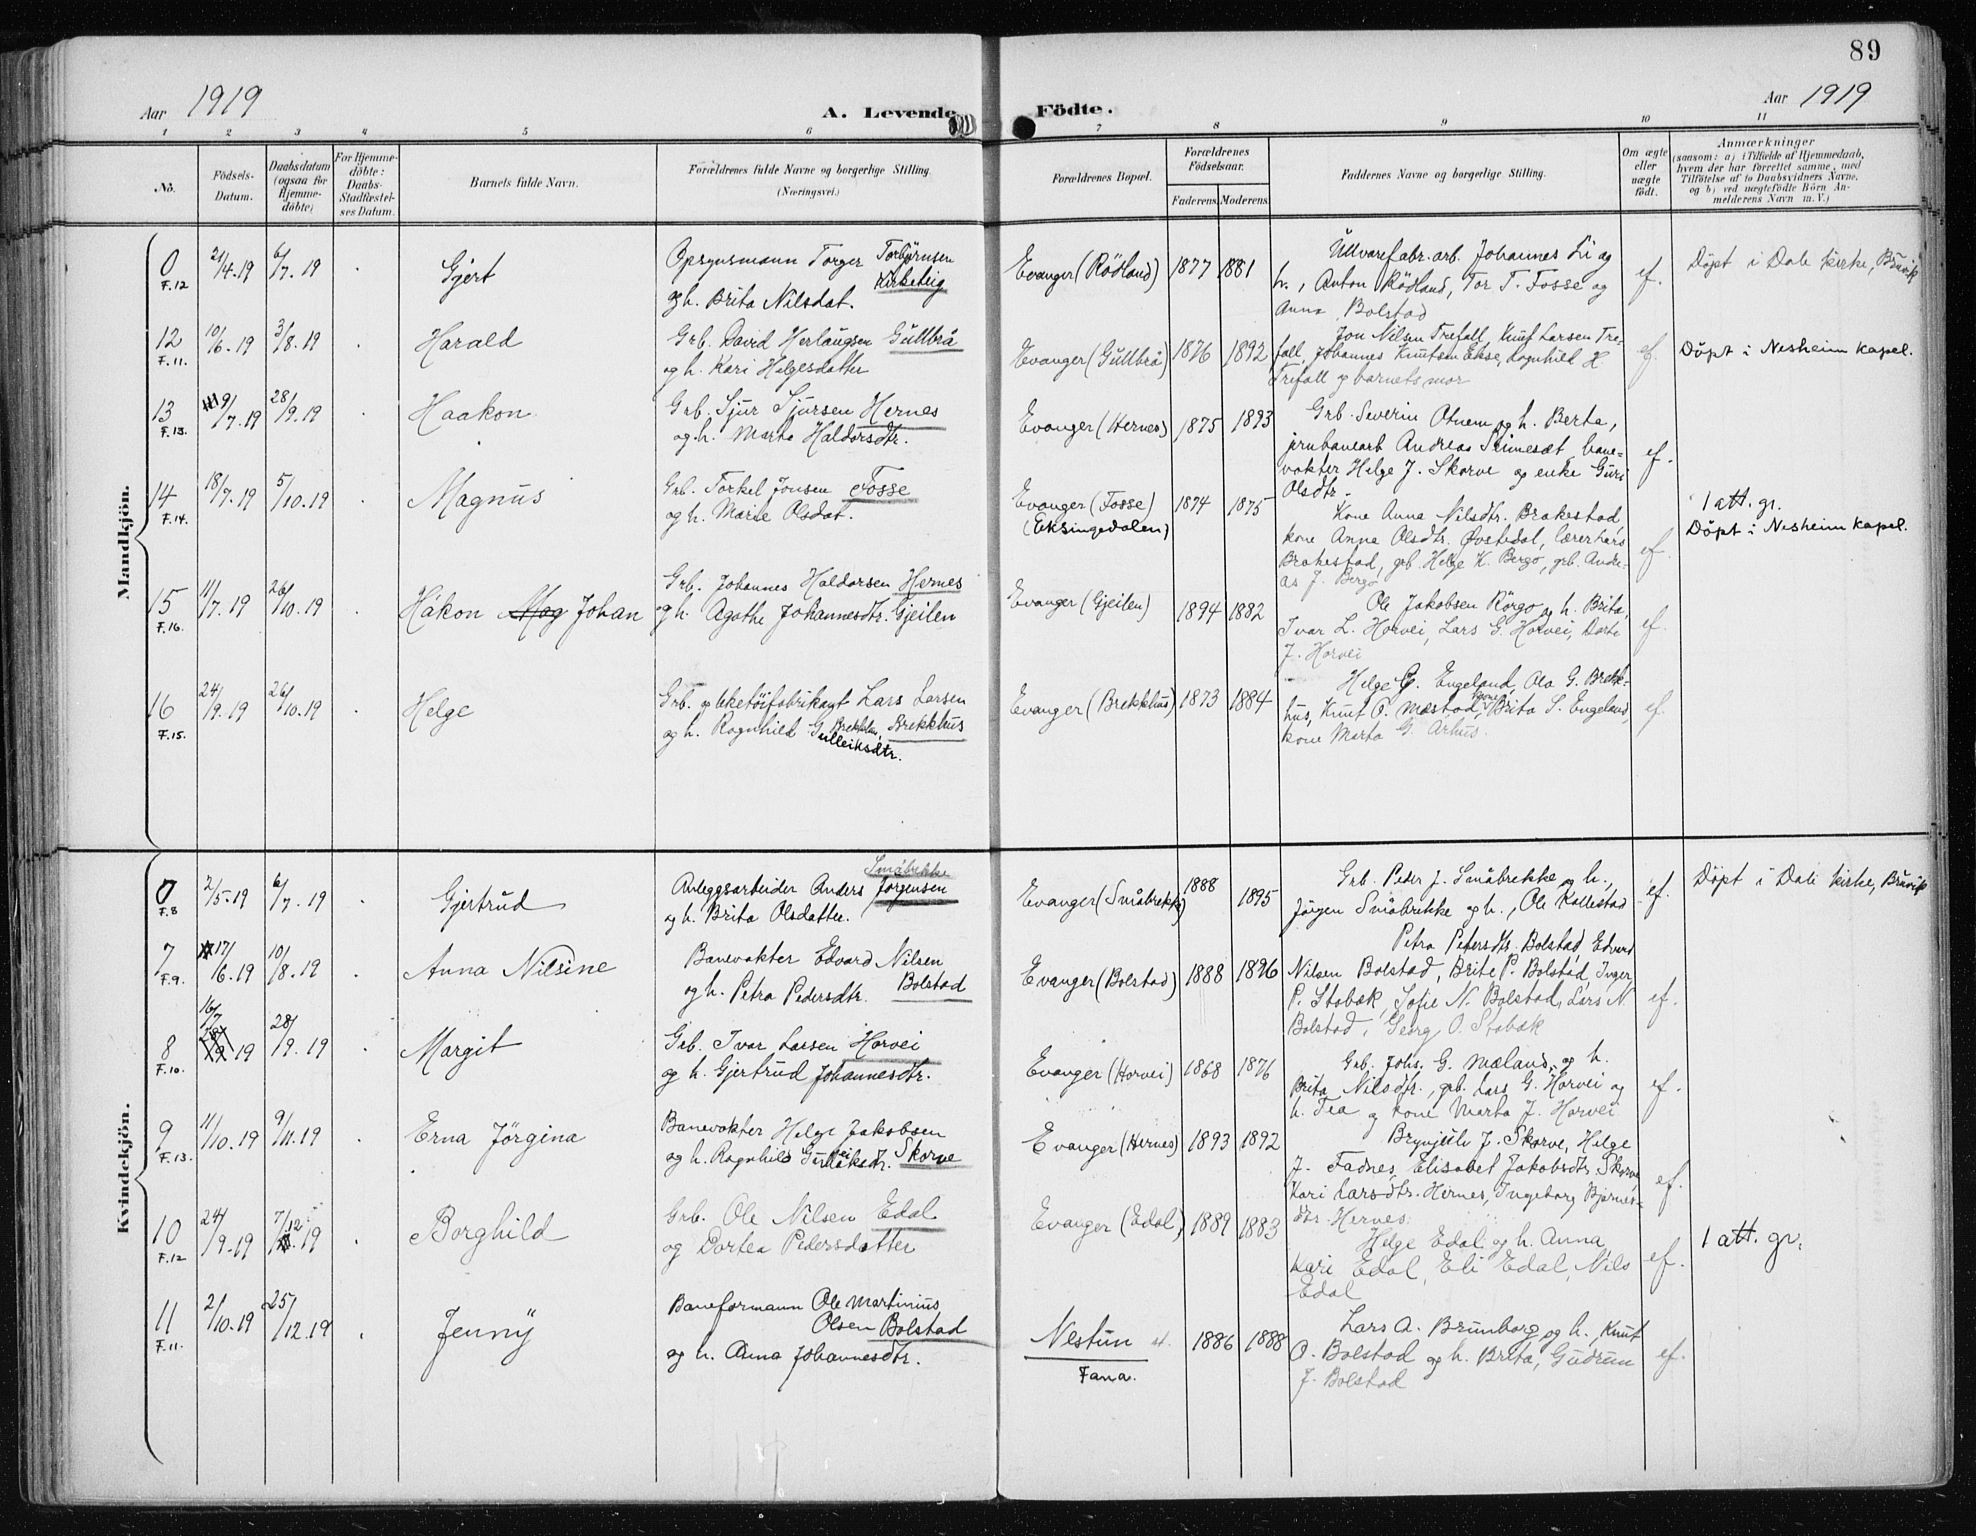 89
Aar 1919
A. Levende
Födte.
Aar 1919
1 2 3 4 5 6 7 8 9 10 11
No.
Födsels-
Datum.
Daabsdatum
(ogsaa for
Hjemme-
döbte)
For Hjemme-
döbte:
Daabs-
Stadfæstel-
ses Datum.
Barnets fulde Navn.
Forældrenes fulde Navne og borgerlige Stilling.
(Næringsvei.)
Forældrenes Bopæl.
Forældrenes
Födselsaar.
Faderens. Moderens.
Faddernes Navne og borgerlige Stilling.
Om ægte
eller
uægte
født.
Anmærkninger
(saasom: a) i Tilfælde af Hjemmedaab,
hvem der har forrettet samme, med
Tilföielse af to Daabsvidners Navne,
og b) ved uægtefödte Börn An-
melderens Navn m. V.)
Mandkjön.
0
F.12
21/4.19
6/7.19
Gjert
Opsynsmann Torger Torbjørnsen
Kirketeig
og h. Brita Nilsdat.
Evanger (Rödland)
1877
1881
Ullvarefabr.arb. Johannes Li og
h., Anton Rödland, Tor T. Fosse og
Anna Bolstad
ef.
Döpt i Dale kirke, Bruvik
12
F.11.
10/6.19
3/8.19
Harald
Grb. David Herlaugsen Gullbrå
og h. Kari Helgesdatter
Evanger (Gullbrå)
1876
1892
Jon Nilsen Trefall, Knut Larsen Tre-
fall, Johannes Knutsen Ekse, Ragnhild H
Trefall og barnets mor
ef.
Döpt i Nesheim kapel.
13
F.13.
9/7.19
28/9.19
Haakon
Grb. Sjur Sjursen Hernes
og h. Marta Haldorsdtr.
Evanger (Hernes)
1875
1893
Grb. Severin Otnem og h. Berta,
jernbanearb Andreas Stimesæt, bane-
vakter Helge J. Skorve og enke Guri
Olsdtr.
ef.
14
F.14.
18/7.19
5/10.19
Magnus
Grb. Torkel Jonsen Fosse
og h. Marie Olsdat.
Evanger (Fosse)
(Eksingedalen)
1874
1875
Kone Anna Nilsdtr. Brakestad,
kone Anna Olsdtr. Övstedal, Lærer Lars
Brakestad, grb Helge K. Bergo, grb. Andre-
as J. Bergo
ef.
1 att. gr.
Döpt i Nesheim kapel.
15
F.16.
11/7.19
26/10.19
Håkon Mag Johan
Grb. Johannes Haldorsen Hernes
og h. Agathe Johannesdtr. Gjeilen
Evanger (Gjeilen)
1894
1882
Ole Jakobsen Rörgo og h. Brita,
Ivar L. Horvei, Lars G. Horvei, Dorte
J. Horvei
ef.
16
F.15.
24/9.19
26/10.19
Helge
Grb. og leketöifabrikant Lars Larsen
og h. Ragnhild G. Brekkhus, Brekkhus
ulleiksdtr.
Evanger (Brekkhus)
1873
1884
Helge G. Engeland, Ola G. Brekk-
hus, Knut O. Mæstad, kone Brita S. Engeland,
kone Marta G. Århus.
ef.
Kvindekjön.
0
F.8
2/5.19
6/7.19
Gjertrud
Småbrekke
Anleggsarbeider Anders Jörgensen
og h. Brita Olsdatter.
Evanger (Småbrekk)
1888
1895
Grb. Peder J. Småbrekke og h.,
Jörgen Småbrekke og h., Ole Kallestad
ef.
Döpt i Dale kirke, Bruvik
7
F.9.
17/6.19
10/8.19
Anna Nilsine
Banevakter Edvard Nilsen
og h. Petra Pedersdtr. Bolstad
Evanger (Bolstad)
1888
1896
Petra Petersdtr. Bolstad, Edvard
Nilsen Bolstad, Brite P. Bolstad, Inger
P. Stabæk, Sofie N. Bolstad, Lars N.
Bolstad, Georg O. Stabæk
ef.
8
F.10.
16/7
19
28/9.19
Margit
Grb. Ivar Larsen Horvei
og h. Gjertrud Johannesdtr.
Evanger (Horvei)
1868
1876
Grb. Johs. G. Mæland, og h.
Brita Nilsdtr., grb. Lars G. Horvei og
h. Tea og kone Marta J. Horvei.
ef.
9
F.13.
11/10.19
9/11.19
Erna Jörgina
Banevakter Helge Jakobsen
og h. Ragnhild Gulleiksdr. Skorve
Evanger (Hernes)
1893
1892
Brynjulv J. Skorve, Helge
J. Fadnes, Elisabet Jakobsdtr Skorve
Kari Larsdtr. Hernes, Ingeborg Bjørnes-
dtr. Hernes.
ef.
10
F.12
24/9.19
7/12.19
Borghild
Grb. Ole Nilsen Edal
og Dortea Pedersdatter
Evanger (Edal)
1889
1883
Helge Edal og h. Anna
Kari Edal, Eli Edal, Nils
Edal
ef.
1 att. gr.
11
F.11.
21/10.19
25/12.19
Jenny
Baneformann Ole Martinius
Olsen Bolstad
og h. Anna Johannesdtr.
Nestun st.
Fana.
1886
1888
Lars A. Brunborg og h., Knut
O. Bolstad og h. Brita, Gudrun
J. Bolstad
ef.